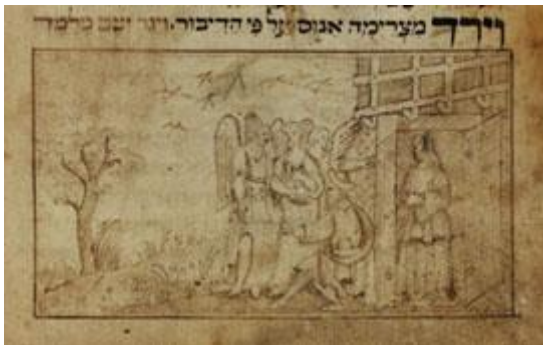 וירד מצרימה אנוס על פי הדיבור. ויגר שם מלמד